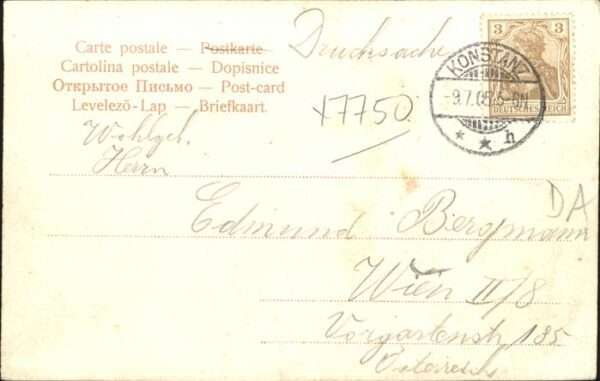 Carte postale — Postkarte
Cartolina postale — Dopisnice
Открытое Письмо — Post-card
Levelező-Lap — Briefkaart
Drucksache
3 3
DEUTSCHES REICH
KONSTANZ
9.7.05.5-6N.
* * h
x7750
Wohlgeb.
Herrn
DA
Edmund Bergmann
Wien II/8
Vorgartenstr 185
Österreich